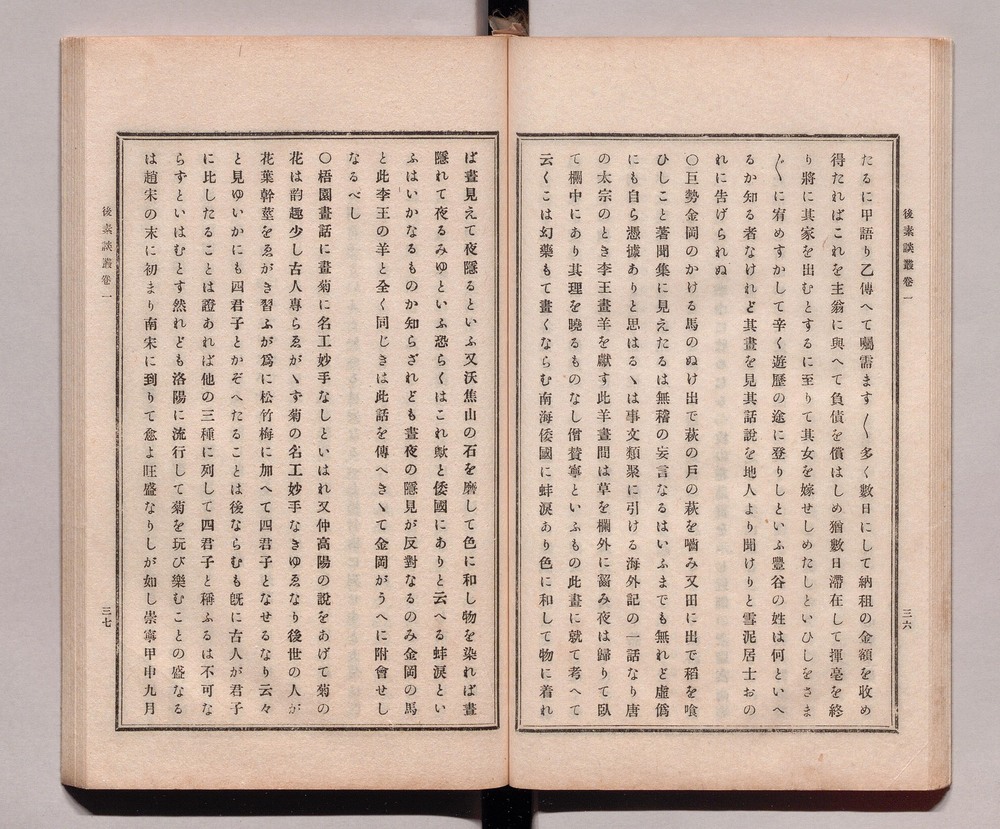 後素談叢卷一
三六
たるに甲語り乙傳へて囑需ます〳〵多く數日にして納租の金額を收め
得たればこれを主翁に與へて負債を償はしめ猶數日滯在して揮毫を終
り將に其家を出むとするに至りて其女を嫁せしめたしといひしをさま
〴〵に宥めすかして辛く遊歷の途に登りしといふ豐谷の姓は何といへ
るか知る者なけれど其畫を見其話說を地人より聞けりと雪泥居士おの
れに告げられぬ
〇巨勢金岡のかける馬のぬけ出で萩の戶の萩を嚙み又田に出で稻を喰
ひしこと著聞集に見えたるは無稽の妄言なるはいふまでも無れど虛僞
にも自ら憑據ありと思はるヽは事文類聚に引ける海外記の一話なり唐
の太宗のとき李王畫羊を獻す此羊晝間は草を欄外に齧み夜は歸りて臥
て欄中にあり其理を曉るものなし僧贊寧といふもの此畫に就て考へて
云くこは幻藥もて畫くならむ南海倭國に蚌淚あり色に和して物に着れ
ば晝見えて夜隱るといふ又沃焦山の石を磨して色に和し物を染れば晝
隱れて夜るみゆといふ恐らくはこれ歟と倭國にありと云へる蚌淚とい
ふはいかなるものか知らざれども晝夜の隱見が反對なるのみ金岡の馬
と此李王の羊と全く同じきは此話を傳へきヽて金岡がうへに附會せし
なるべし
〇梧園畫話に畫菊に名工妙手なしといはれ又仲高陽の說をあげて菊の
花は韵趣少し古人專らゑがヽず菊の名工妙手なきゆゑなり後世の人が
花葉幹莖をゑがき習ふが爲に松竹梅に加へて四君子となせるなり云々
と見ゆいかにも四君子とかぞへたることは後ならむも旣に古人が君子
に比したることは證あれば他の三種に列して四君子と稱ふるは不可な
らずといはむとす然れども洛陽に流行して菊を玩び樂むことの盛なる
は趙宋の末に初まり南宋に到りて愈よ旺盛なりしが如し崇寧甲申九月
後素談叢卷一
三七